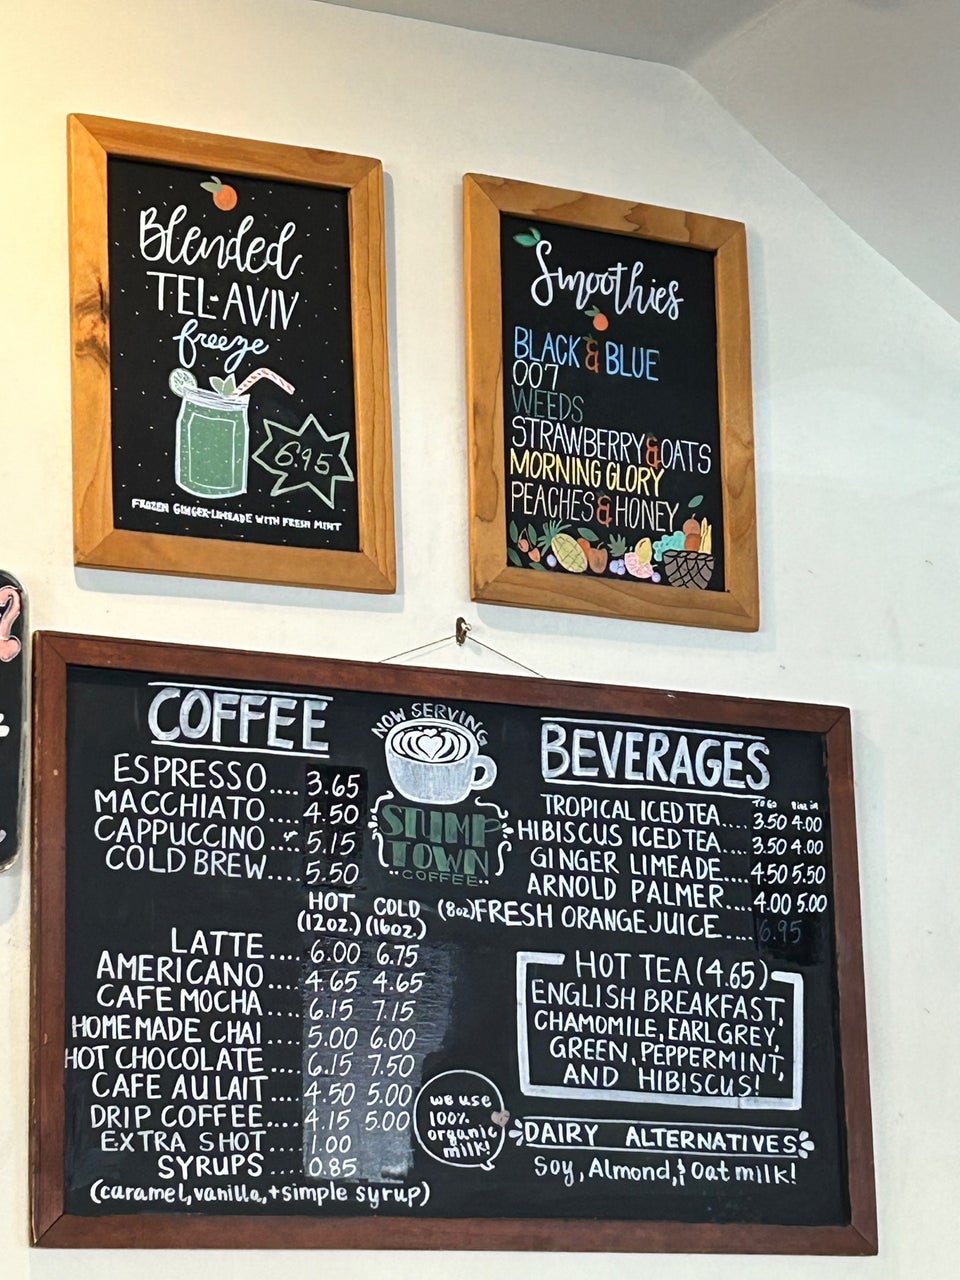 Blended
TEL-AVIV
freeze
6.95
FROZEN GINGER-LIMEADE WITH FRESH MINT
Smoothies
BLACK & BLUE
007
WEEDS
STRAWBERRY & OATS
MORNING GLORY
PEACHES & HONEY
COFFEE
ESPRESSO.... 3.65
MACCHIATO.... 4.50
CAPPUCCINO... 5.15
COLD BREW.... 5.50
HOT COLD
(12oz.) (16oz.)
LATTE.... 6.00 6.75
AMERICANO.... 4.65 4.65
CAFE MOCHA.... 6.15 7.15
HOMEMADE CHAI.... 5.00 6.00
HOT CHOCOLATE.... 6.15 7.50
CAFE AU LAIT.... 4.50 5.00
DRIP COFFEE.... 4.15 5.00
EXTRA SHOT.... 1.00
SYRUPS.... 0.85
(caramel, vanilla, + simple syrup)
NOW SERVING
STUMP
TOWN
COFFEE
we use
100%
organic
milk!
BEVERAGES
TO GO Dine in
TROPICAL ICED TEA.... 3.50 4.00
HIBISCUS ICED TEA.... 3.50 4.00
GINGER LIMEADE.... 4.50 5.50
ARNOLD PALMER.... 4.00 5.00
(8oz) FRESH ORANGE JUICE.... 6.95
HOT TEA (4.65)
ENGLISH BREAKFAST,
CHAMOMILE, EARL GREY,
GREEN, PEPPERMINT,
AND HIBISCUS!
DAIRY ALTERNATIVES
Soy, Almond, & Oat milk!